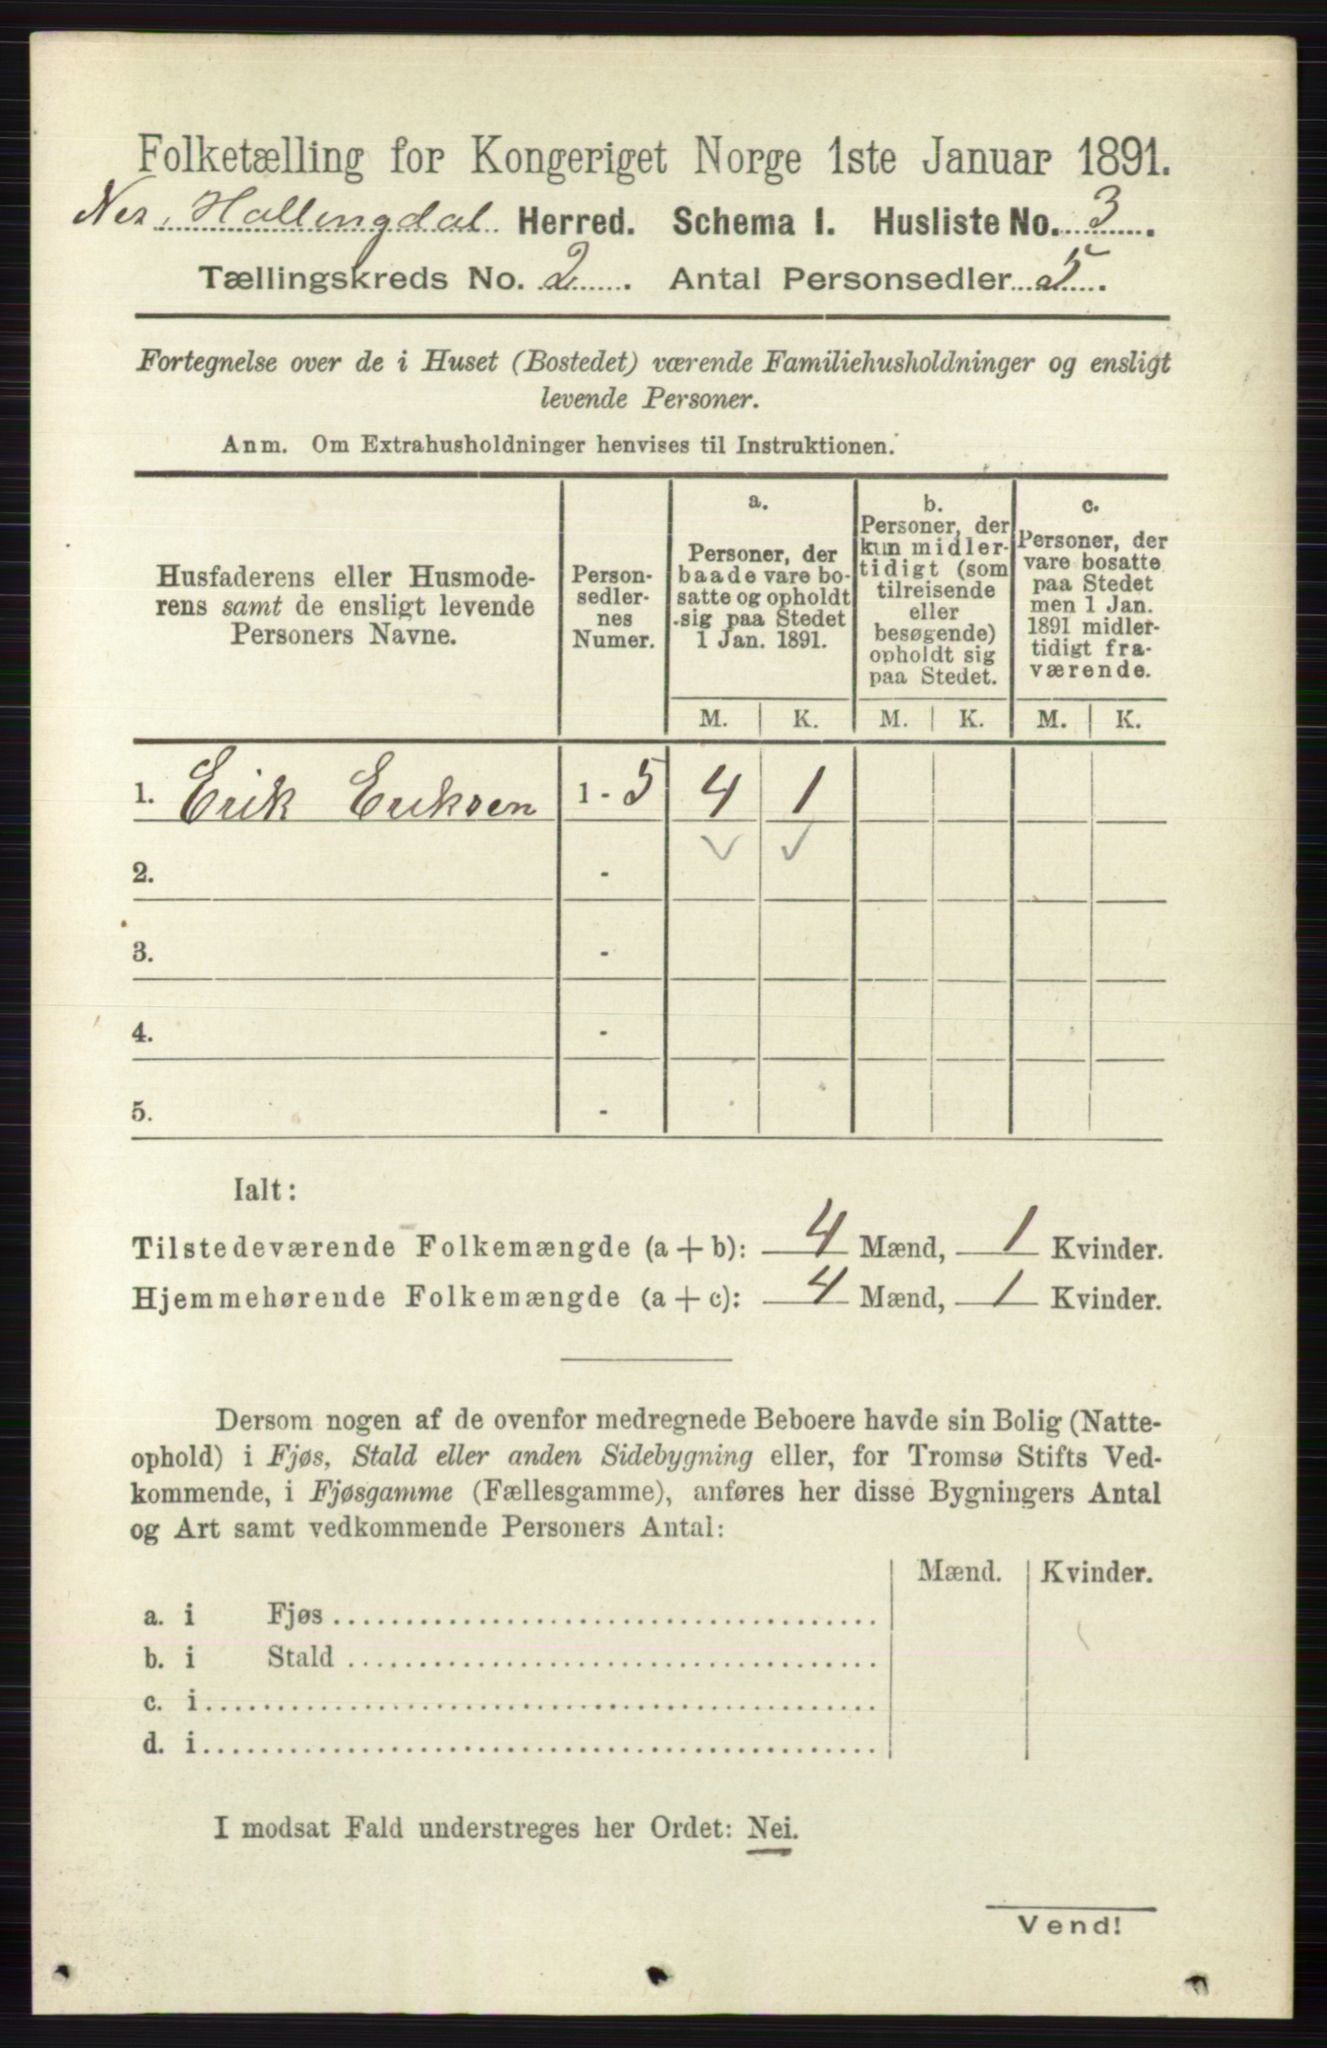 Folketælling for Kongeriget Norge 1ste Januar 1891.
Nes, Hallingdal Herred. Schema I. Husliste No. 3.
Tællingskreds No. 2. Antal Personsedler 5.
Fortegnelse over de i Huset (Bostedet) værende Familiehusholdninger og ensligt
levende Personer.
Anm. Om Extrahusholdninger henvises til Instruktionen.
Husfaderens eller Husmode-
rens samt de ensligt levende
Personers Navne.
Person-
sedler-
nes
Numer.
a.
Personer, der
baade vare bo-
satte og opholdt
sig paa Stedet
1 Jan. 1891.
b.
Personer, der
kun midler-
tidigt (som
tilreisende
eller
besøgende)
opholdt sig
paa Stedet.
c.
Personer, der
vare bosatte
paa Stedet
men 1 Jan.
1891 midler-
tidigt fra-
værende.
M. K. M. K. M. K.
1. Erik Eriksen 1 - 5 4 1
2. -
3. -
4. -
5. -
Ialt:
Tilstedeværende Folkemængde (a + b): 4 Mænd, 1 Kvinder.
Hjemmehørende Folkemængde (a + c): 4 Mænd, 1 Kvinder.
Dersom nogen af de ovenfor medregnede Beboere havde sin Bolig (Natte-
ophold) i Fjøs, Stald eller anden Sidebygning eller, for Tromsø Stifts Ved-
kommende, i Fjøsgamme (Fællesgamme), anføres her disse Bygningers Antal
og Art samt vedkommende Personers Antal:
Mænd. Kvinder.
a. i Fjøs
b. i Stald
c. i
d. i
I modsat Fald understreges her Ordet: Nei.
Vend!